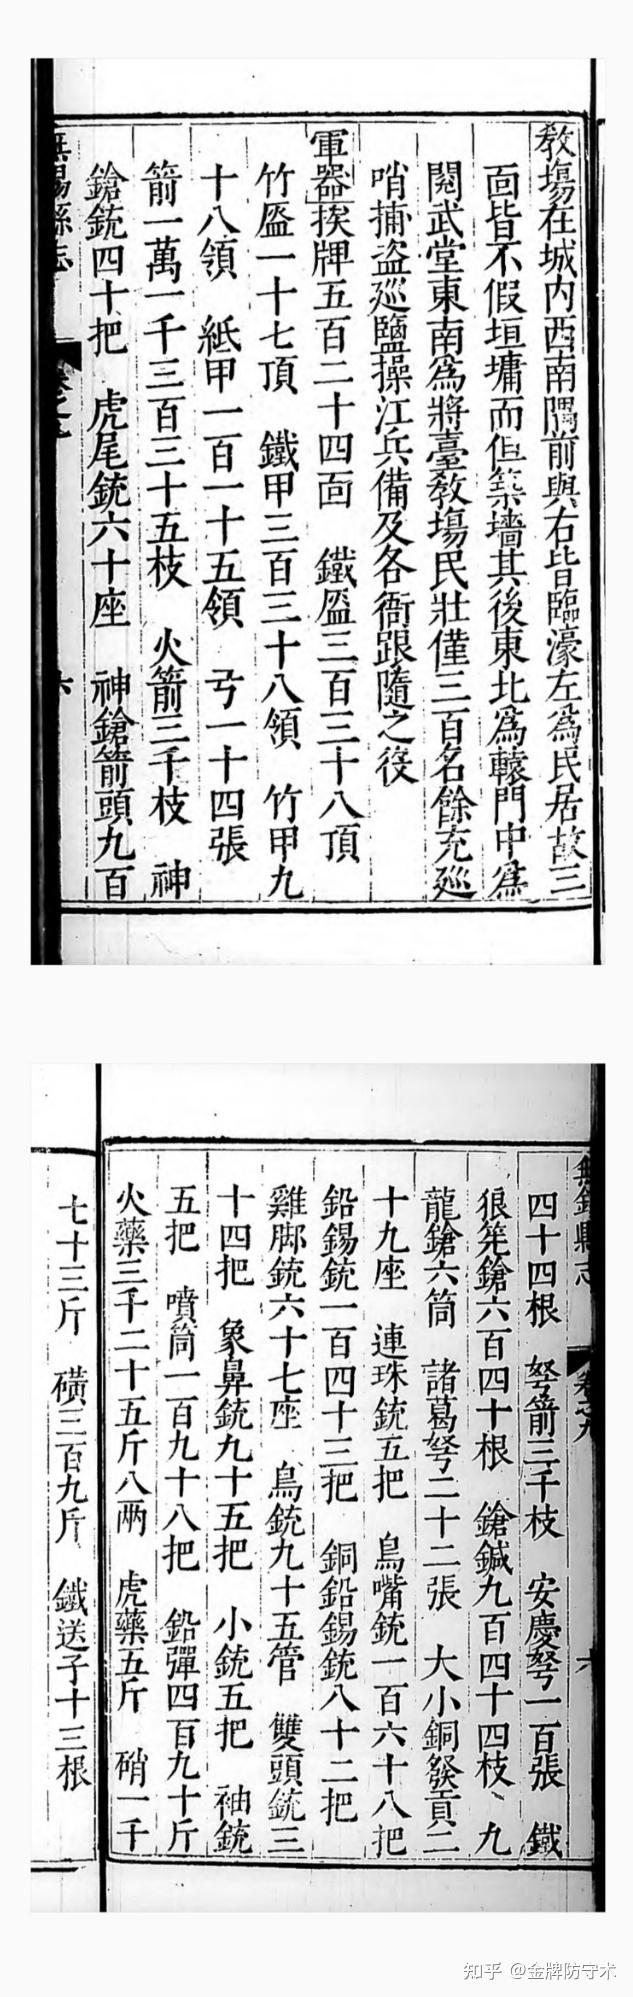 教場在城内西南隅前與右皆臨濠左爲民居故三
面皆不假垣墉而但築墻其後東北爲轅門中爲
閱武堂東南爲將臺教場民壯僅三百名餘充廵
哨捕盗廵鹽操江兵備及各衙跟隨之役
軍器挨牌五百二十四面　鐵盔三百三十八頂
竹盔一十七頂　鐵甲三百三十八領　竹甲九
十八領　紙甲一百一十五領　弓一十四張
箭一萬一千三百三十五枝　火箭三千枝　神
鎗銃四十把　虎尾銃六十座　神鎗箭頭九百
無錫縣志　卷之九　六
無錫縣志　卷之九　六
四十四根　弩箭三千枝　安慶弩一百張　鐵
狼筅鎗六百四十根　鎗鍼九百四十四枝　九
龍鎗六筒　諸葛弩二十二張　大小銅發貢二
十九座　連珠銃五把　鳥嘴銃一百六十八把
鉛錫銃一百四十三把　銅鉛錫銃八十二把
雞脚銃六十七座　鳥銃九十五管　雙頭銃三
十四把　象鼻銃九十五把　小銃五把　袖銃
五把　噴筒一百九十八把　鉛彈四百九十斤
火藥三千二十五斤八兩　虎藥五斤　硝一千
七十三斤　磺三百九斤　鐵送子十三根
知乎 @金牌防守术